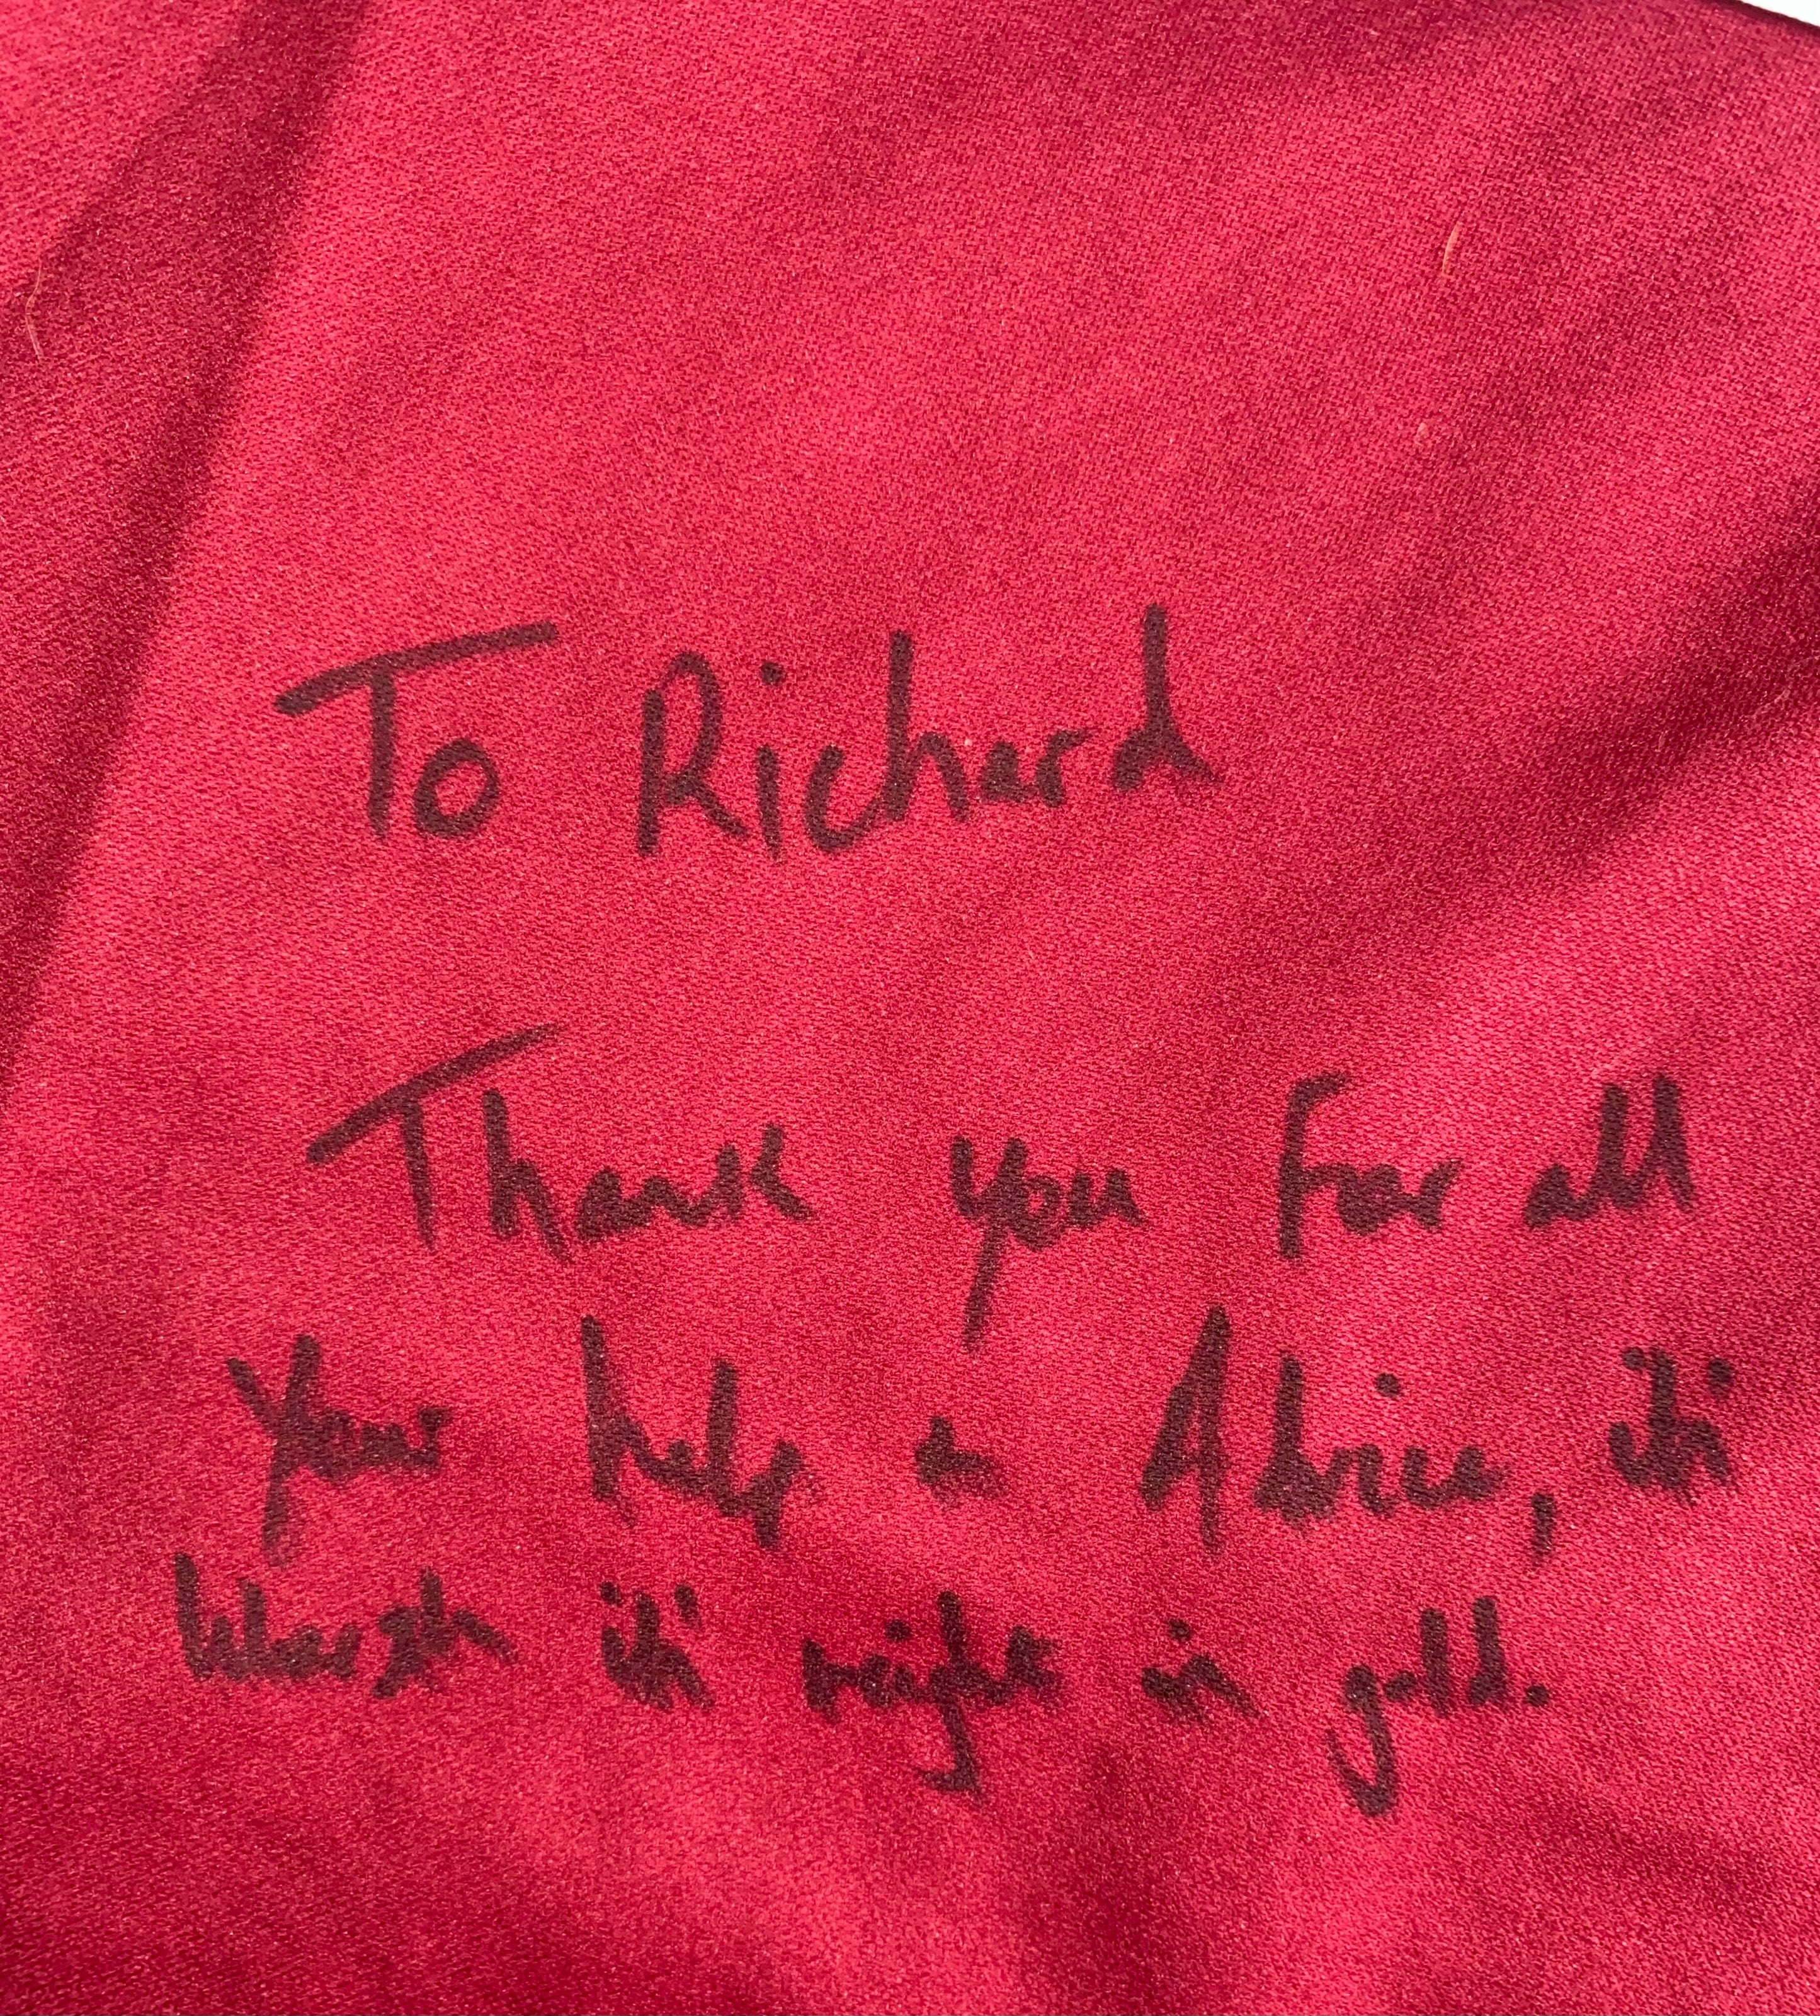 To Richard
Thank you for all
your help & Advice, it's
Worth it's weight in gold.